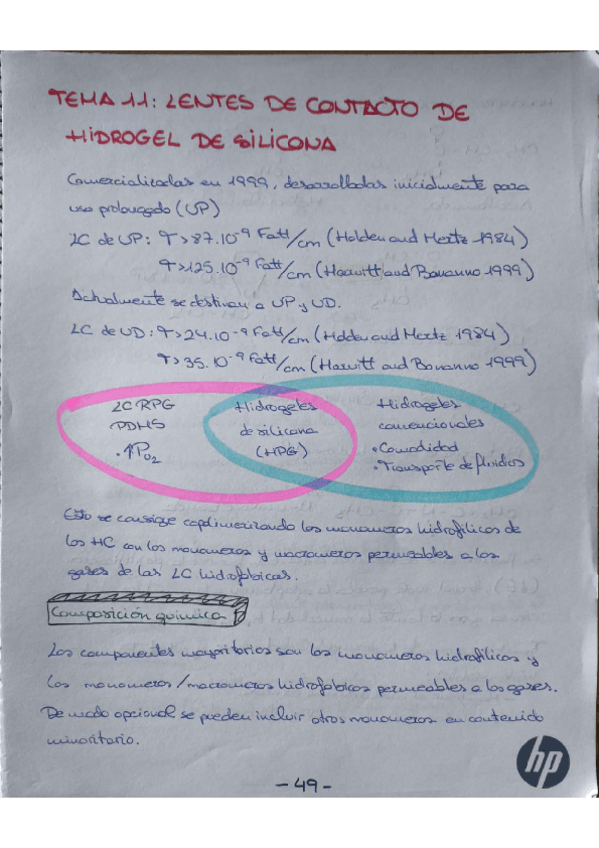 TEMA 11: LENTES DE CONTACTO DE
HIDROGEL DE SILICONA
Comercializadas en 1999, desarrolladas inicialmente para
uso prolongado (UP)
LC de UP: T>87.10⁻⁹ Fatt/cm (Holden and Mertz 1984)
T>125.10⁻⁹ Fatt/cm (Harvitt and Bonanno 1999)
Actualmente se destinan a UP y UD.
LC de UD: T>24.10⁻⁹ Fatt/cm (Holden and Mertz 1984)
T>35.10⁻⁹ Fatt/cm (Harvitt and Bonanno 1999)
LC RPG
PDMS
·↑PO₂
Hidrogeles
de silicona
(HPG)
Hidrogeles
convencionales
·Comodidad
·Transporte de fluidos
Esto se consigue coplimerizando los monómeros hidrofílicos de
los HC con los monómeros y macrómeros permeables a los
gases de las LC hidrofóbicas.
Composición química
Los componentes mayoritorios son los monómeros hidrofílicos y
los monómeros/macrómeros hidrofóbicos permeables a los gases.
De modo opcional se pueden incluir otros monómeros en contenido
minoritario.
-49-
hp